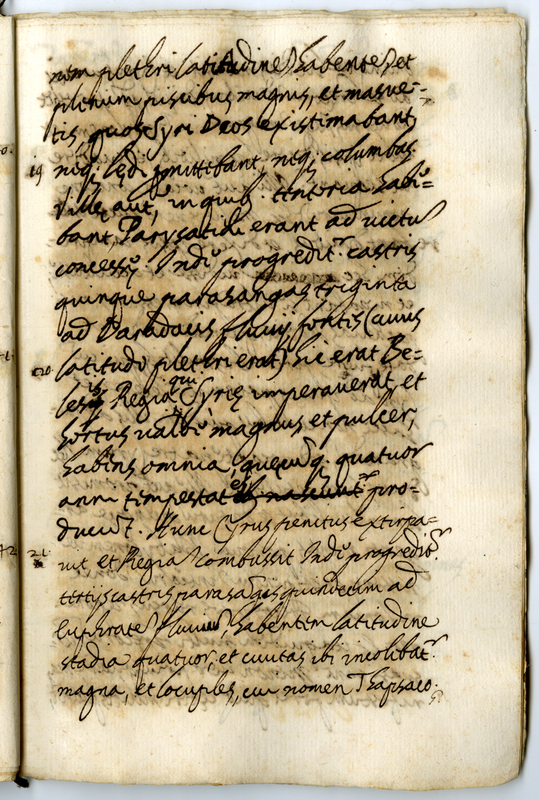 nem plethri latitudine) habente, et
plenum piscibus magnis, et masue-
tis, quos Syri Deos existimabant,
19 neq; lędi pmittebant, neq; columbas.
Villę aut, in quib. tentoria habi=
bant, Parysatidi erant ad victu
concessę. Indi progredit castris
quinque parasangas triginta
ad Daradacis fluuij fontis (cuius
20 latitudo plethri erat) hic erat Be=
lesis Regia qui Syrię imperauerat, et
hortus valde magnus et pulcer,
habins omnia, quęcuq. quatuor
anni timpestates pro-
ducut. Hunc Cyrus penitus extirpa-
21 uit et Regia combussit Indi progredit
tertijs castris parasagis quindecim ad
Euphrate fluuiu, habentem latitudine
stadia quatuor, et ciuitas ibi incolibat
magna, et locuples, cui nomen Thapsaco.